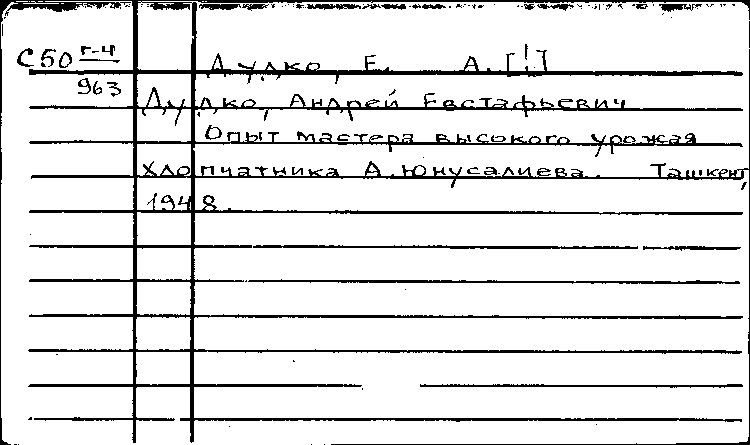 С50 г-4
963
Дудко, Е. А. [!]
Дудко, Андрей Евстафьевич
Опыт мастера высокого урожая
хлопчатника А. Юнусалиева. Ташкент,
1948.